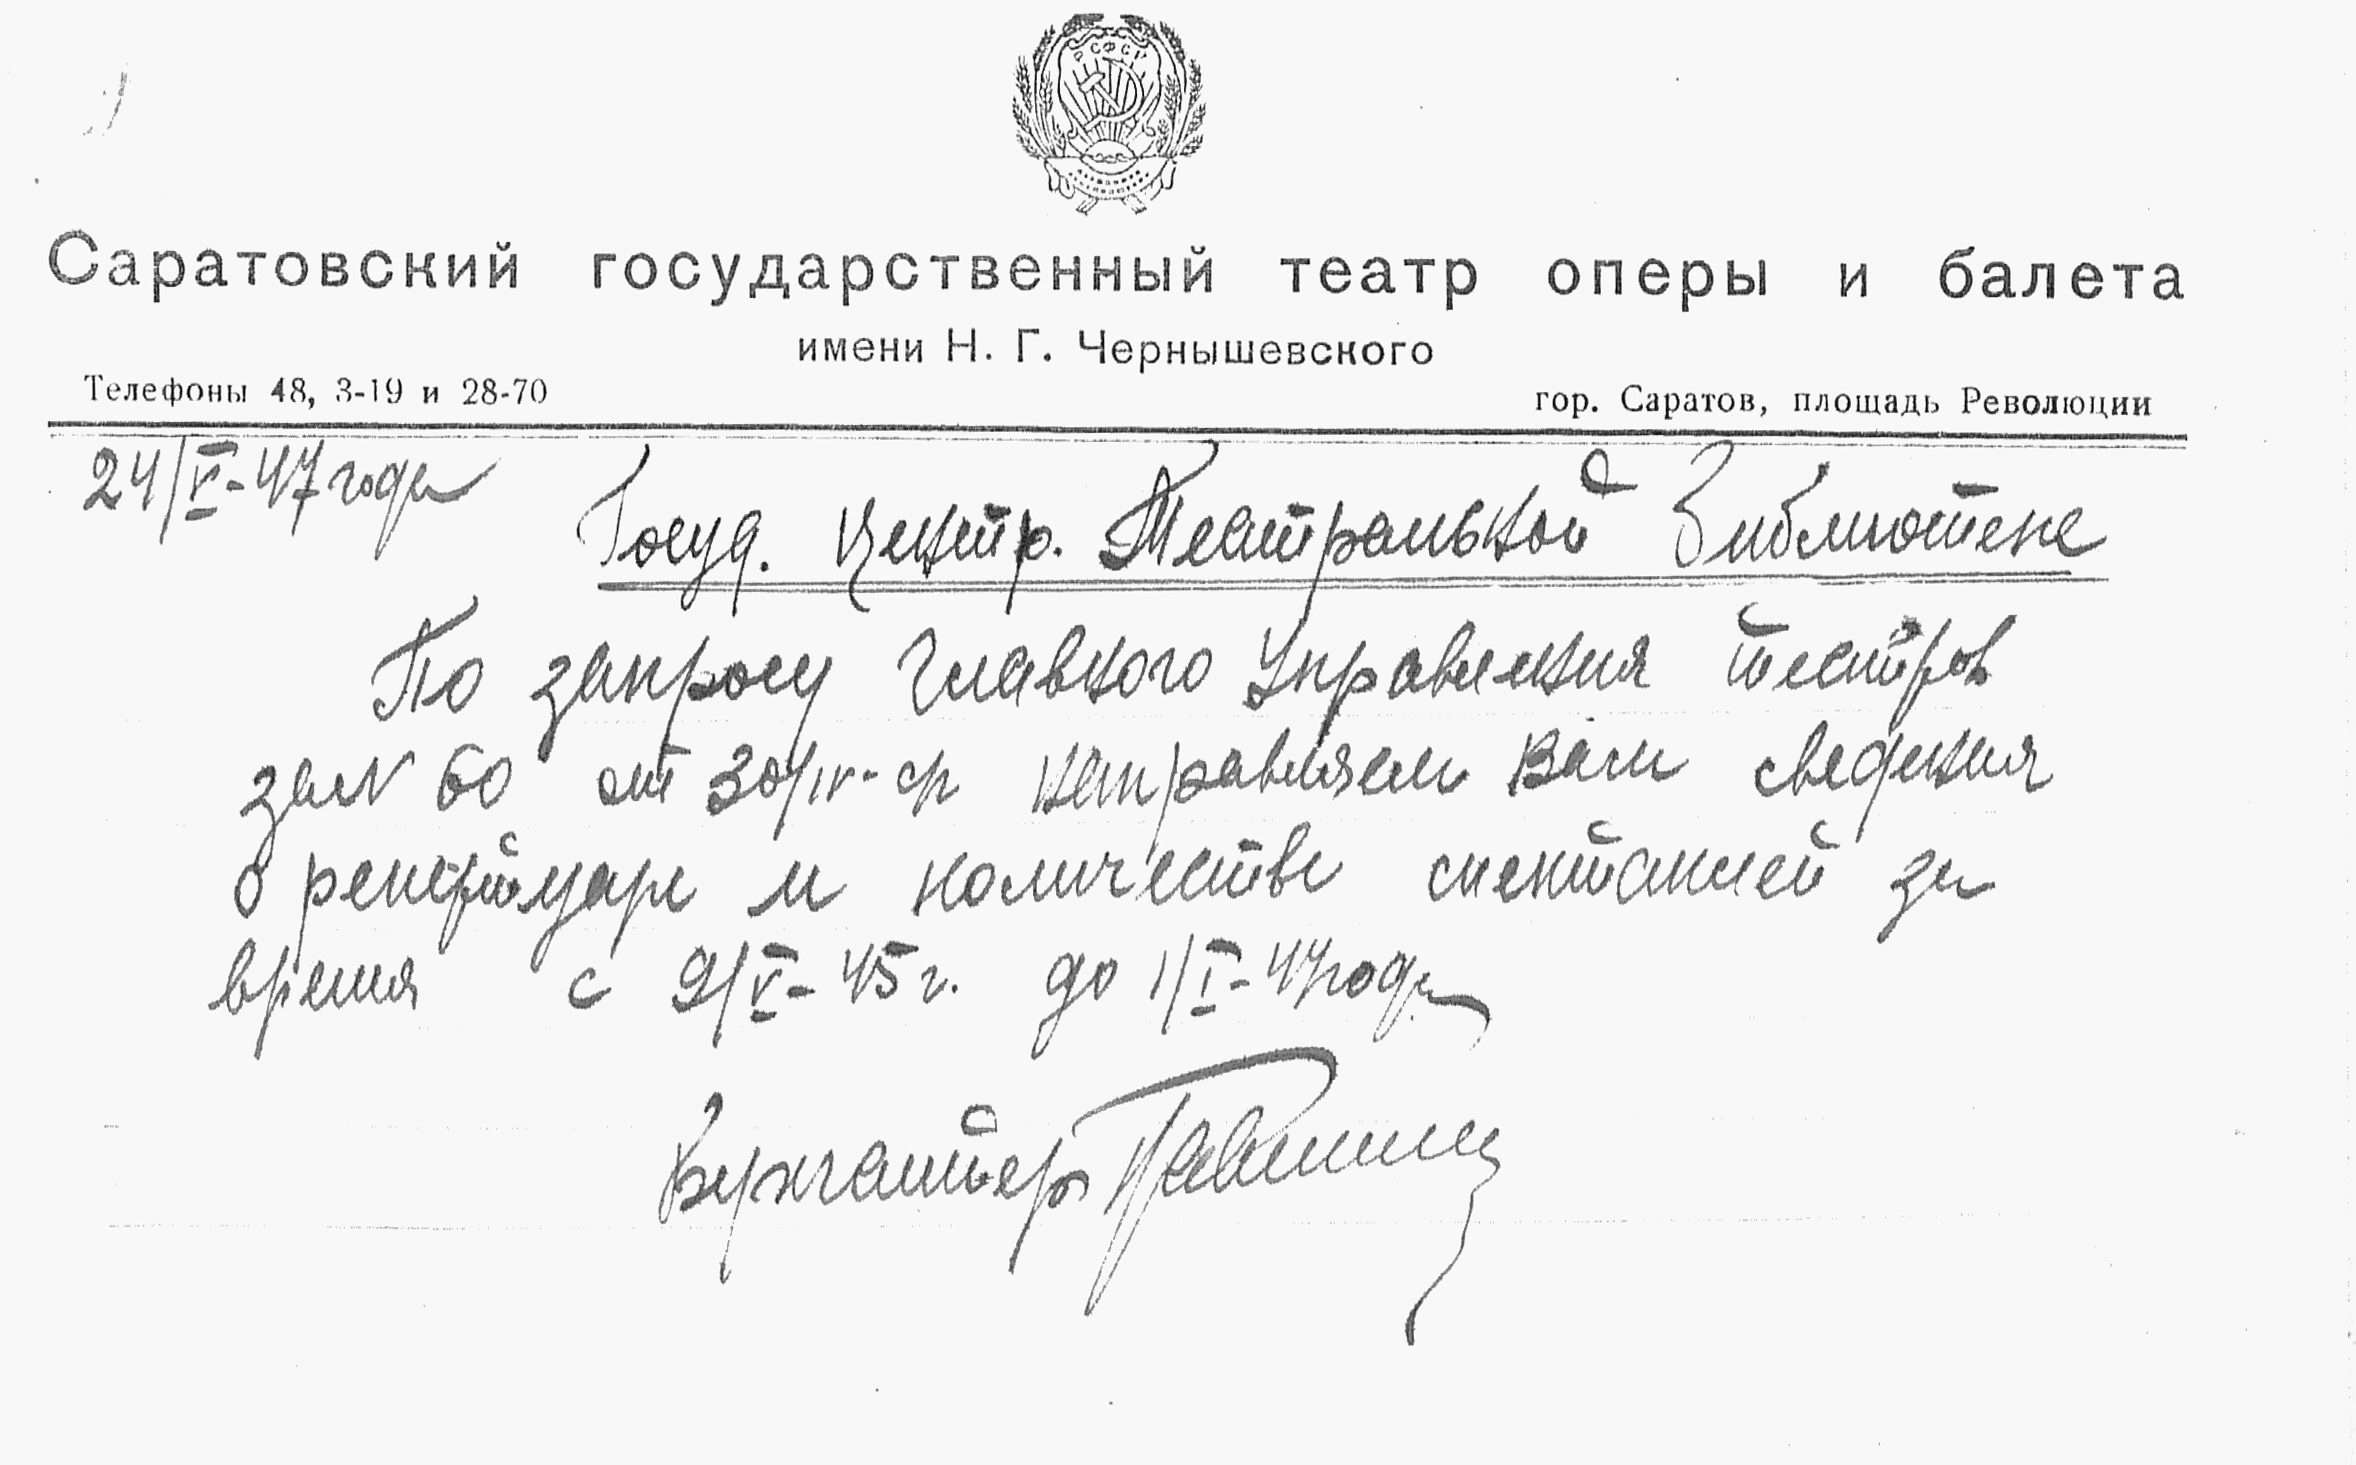 РСФСР
Саратовский государственный театр оперы и балета
имени Н. Г. Чернышевского
Телефоны 48, 3-19 и 28-70
гор. Саратов, площадь Революции
24/V-47 года
Госуд. центр. Театральной Библиотеке
По запросу Главного Управления театров
за № 60 от 30/IV-с/г направляем Вам сведения
о репертуаре и количестве спектаклей за
время с 9/V-45 г. до 1/I-47 года
Бухгалтер